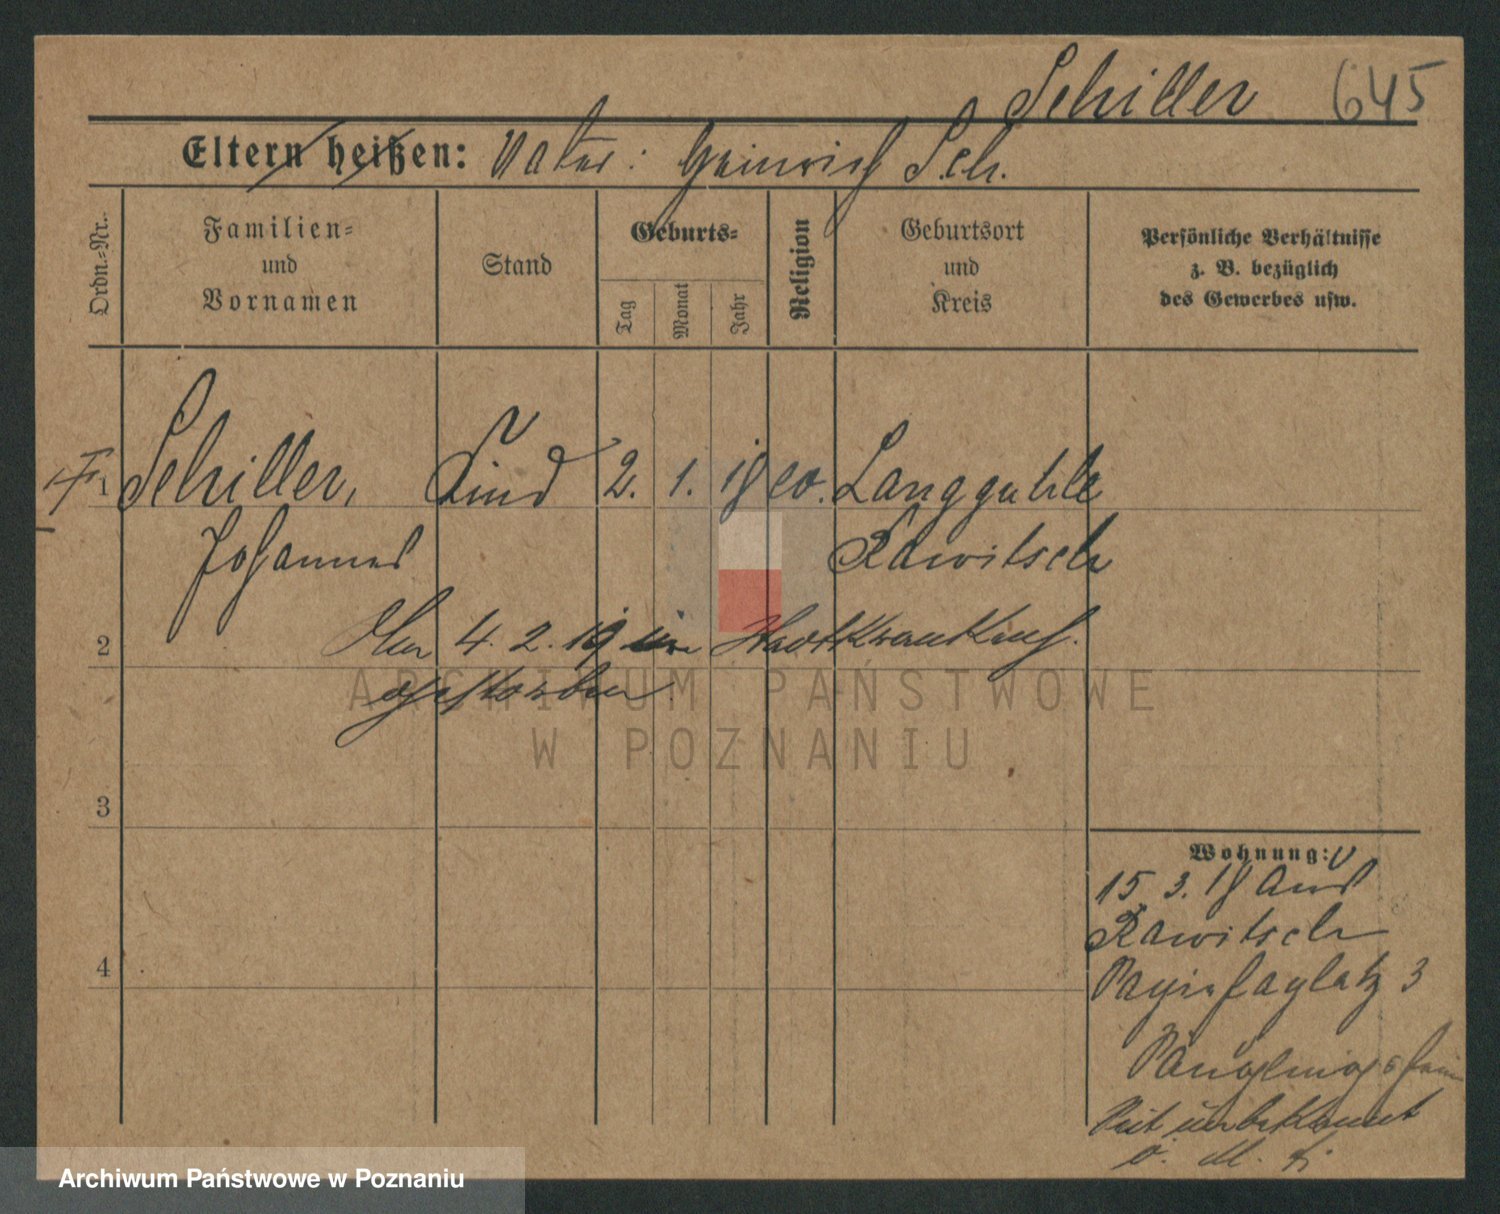 Schiller 645
Eltern heißen: Vater: Heinrich Sch.
Ordn.-Nr.
Familien-
und
Vornamen
Stand
Geburts-
Tag
Monat
Jahr
Religion
Geburtsort
und
Kreis
Persönliche Verhältnisse
z. B. bezüglich
des Gewerbes usw.
1 Schiller, Kind 2. 1. Langguhle
Johannes Rawitsch
2 4. 2. 19 im Stadtkrankenh.
gestorben
3
4
ARCHIWUM PAŃSTWOWE
W POZNANIU
Wohnung: V
15. 3. 18 aus
Rawitsch
3
Säuglingsheim
Seit unbekannt
Archiwum Państwowe w Poznaniu